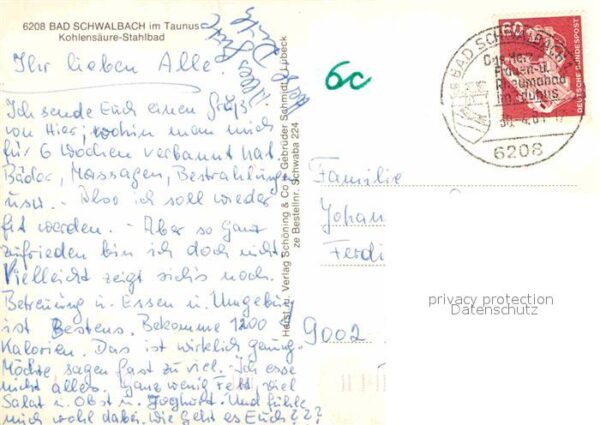 6208 BAD SCHWALBACH im Taunus
Kohlensäure-Stahlbad
Ihr lieben Alle.
Ich sende Euch einen Gruß
von Hier, wohin man mich
für 6 Wochen verbannt hat.
Bäder, Massagen, Bestrahlungen
usw. - Also ich soll wieder
fit werden. - Aber so ganz
zufrieden bin ich doch nicht.
Vielleicht zeigt sichs noch.
Betreuung u. Essen u. Umgebung
ist Bestens. Bekomme 1200
Kalorien. Das ist wirklich genug.
Möchte sagen fast zu viel. Ich esse
nicht alles. Ganz wenig Fett, viel
Salat u. Obst u. Joghurt. Und fühle
mich wohl dabei. Wie geht es Euch???
Herst. u. Verlag Schöning & Co + Gebrüder Schmidt, Lübeck
ze Bestellnr. Schwaba 224
6c
BAD SCHWALBACH 1
Das Herz-
Frauen-u.
Rheumabad
im Taunus
30.-4.81
6208
60
DEUTSCHE BUNDESPOST
Familie
Johan
Ferdi
9002
privacy protection
Datenschutz